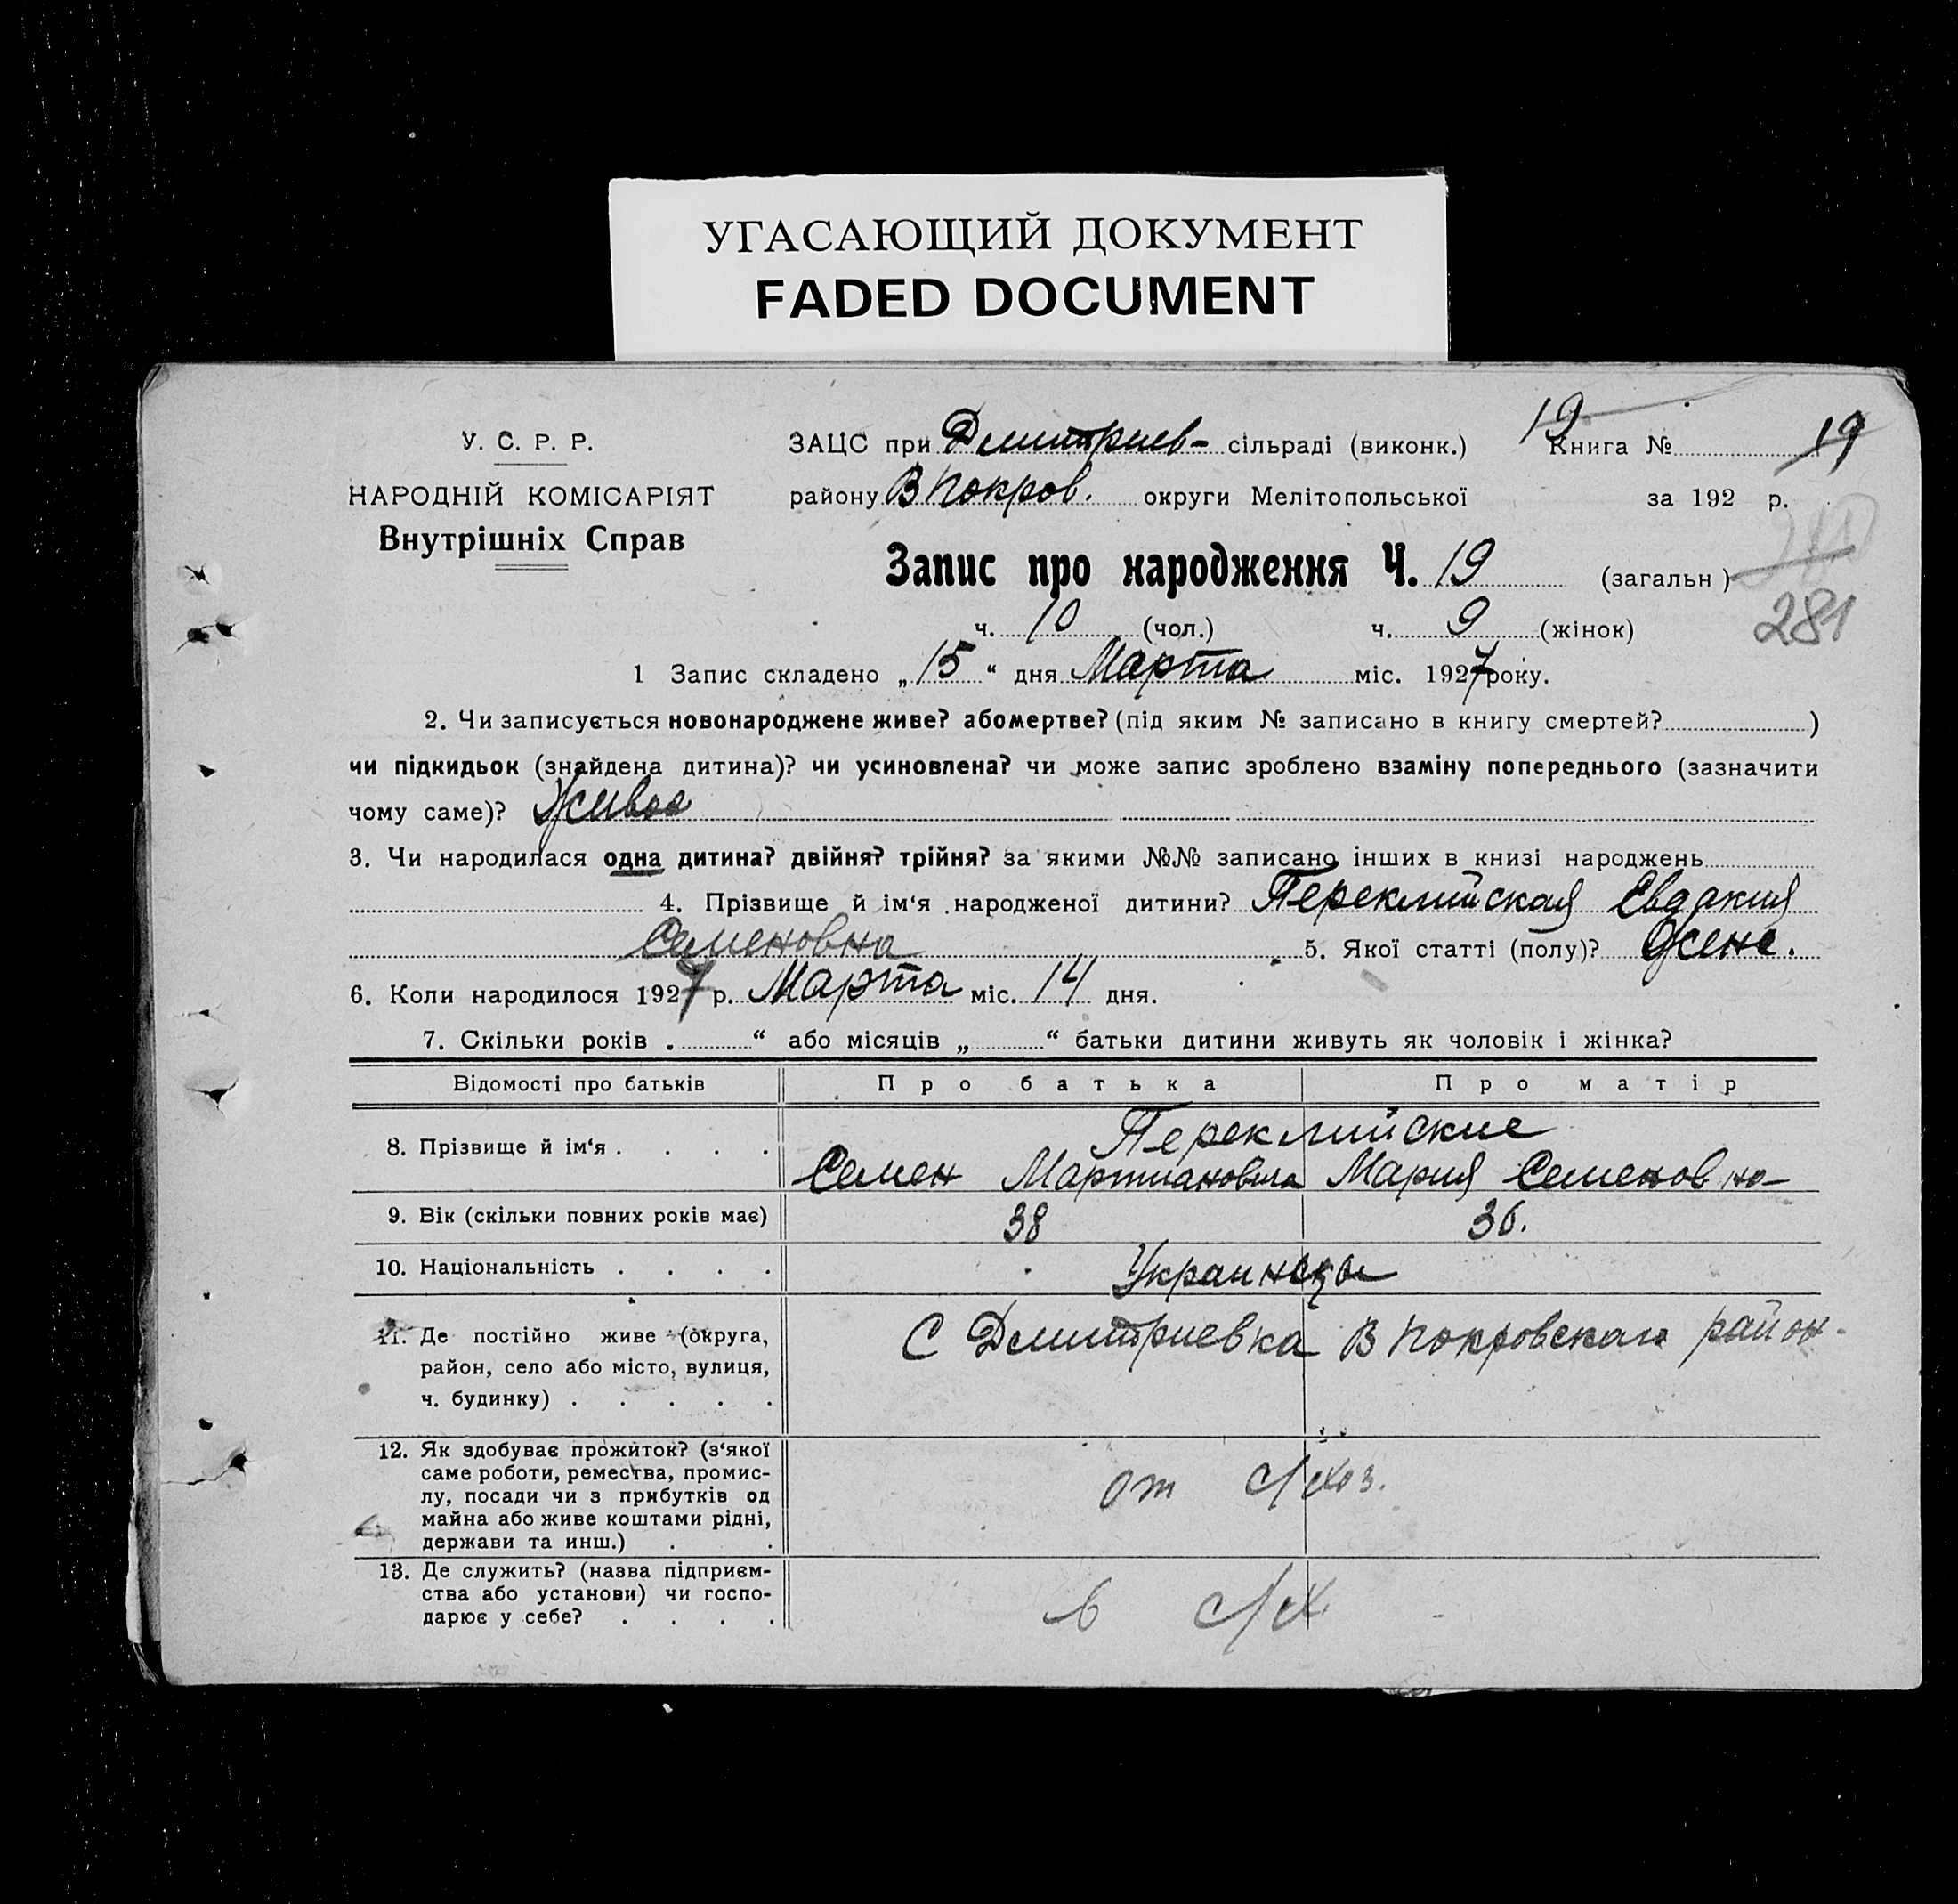 УГАСАЮЩИЙ ДОКУМЕНТ
FADED DOCUMENT
У. С. Р. Р.
НАРОДНІЙ КОМІСАРІЯТ
Внутрішніх Справ
ЗАЦС при Дмитриев- сільраді (виконк.) 19 Книга № 19
району ВПокров. округи Мелітопольської за 192 р.
Запис про народження Ч. 19 (загальн)
281
ч. 10 (чол.) ч. 9 (жінок)
1 Запис складено „15“ дня Марта міс. 1927 року.
2. Чи записується новонароджене живе? або мертве? (під яким № записано в книгу смертей? )
чи підкидьок (знайдена дитина)? чи усиновлена? чи може запис зроблено взаміну попереднього (зазначити
чому саме)? Живое
3. Чи народилася одна дитина? двійня? трійня? за якими №№ записано інших в книзі народжень
4. Прізвище й ім‘я народженої дитини? Переклийская Евдакия
Семеновна 5. Якої статті (полу)? Женс.
6. Коли народилося 1927 р. Марта міс. 14 дня.
7. Скільки років „ “ або місяців „ “ батьки дитини живуть як чоловік і жінка?
Відомості про батьків Про батька Про матір
8. Прізвище й ім‘я . . . . Переклийские
Семен Мартиановича Мария Семеновно-
9. Вік (скільки повних років має) 38 36.
10. Національність . . . . Украинцы
11. Де постійно живе (округа,
район, село або місто, вулиця,
ч. будинку) . . . . .
С Дмитриевка ВПокровскага район-
12. Як здобуває прожиток? (з‘якої
саме роботи, ремества, промис-
лу, посади чи з прибутків од
майна або живе коштами рідні,
держави та инш.) . .
от с/хоз.
13. Де служить? (назва підприєм-
ства або установи) чи госпо-
дарює у себе? . . . .
в с/х